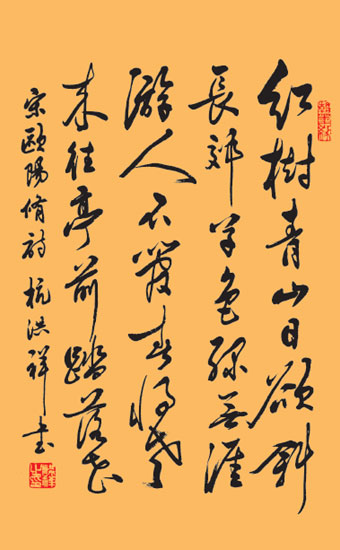 紅樹青山日欲斜
長郊草色綠無涯
游人不管春將老
来往亭前踏落花
宋歐陽脩詩 杭洪祥書